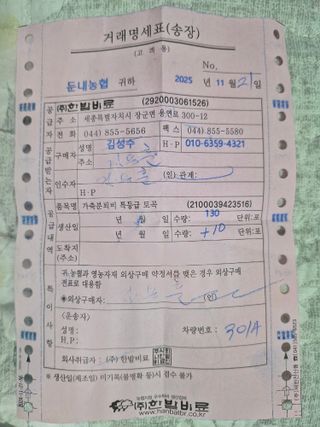 거래명세표(송장)
(고객용)
No.
둔내농협 귀하 2025년 11월 21일
(주)한빛비료 (2920003061526)
주소 세종특별자치시 장군면 용연로 300-12
전화 (044) 855-5656 팩스 (044) 855-5580
구매자 성명 김성수 H·P 010-6359-4321
주소
인수자 (인) 관계:
H·P
품목명 가축분퇴비 특등급 도곡 (2100039423516)
생산일 년 월 일 수량: 130 단위:포
년 월 일 수량: +10 단위:포
도착지
(주소)
귀 농협과 영농자재 외상구매 약정서를 맺은 경우 외상구매
전표로 대용함
※외상구매자: (인)
<운송자>
성명: 차량번호: 301A
H.P:
회사취급자 : (주) 한빛비료
※ 생산일(제조일) 미기록(불명확 등)시 접수 불가
(주)한빛비료
www.hanbaltr.co.kr